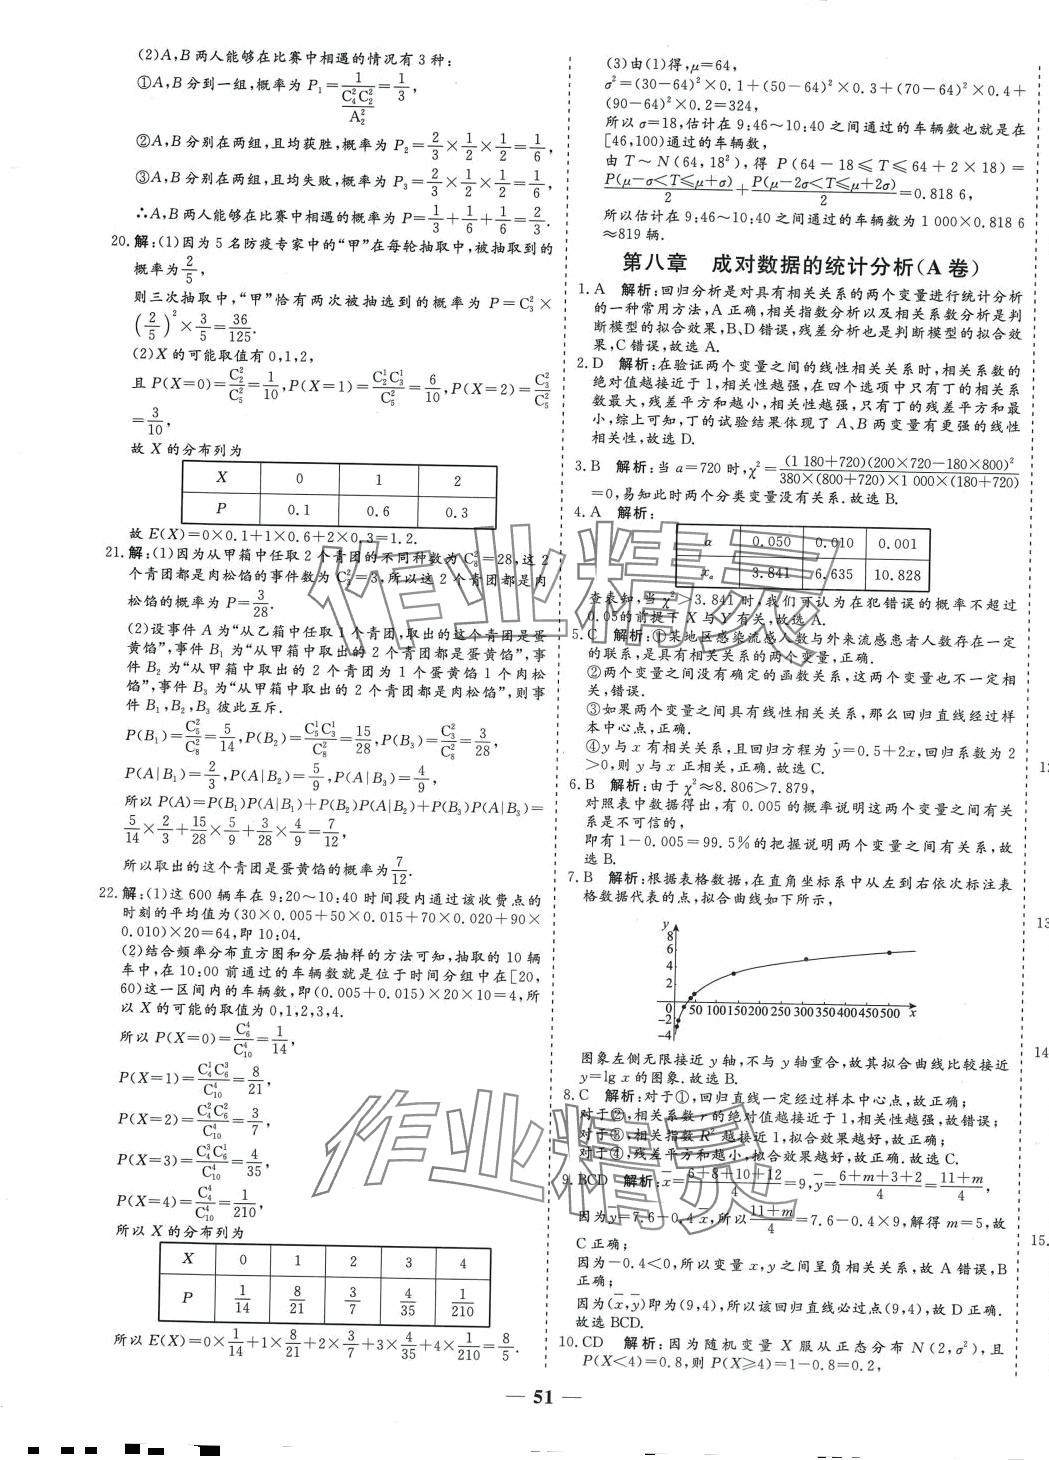 (2)A,B两人能够在比赛中相遇的情况有3种:
①A,B分到一组,概率为 P₁=1/(C₄²C₂²/A₂²)=1/3,
②A,B分别在两组,且均获胜,概率为 P₂=2/3×1/2×1/2=1/6,
③A,B分别在两组,且均失败,概率为 P₃=2/3×1/2×1/2=1/6,
∴A,B两人能够在比赛中相遇的概率为 P=1/3+1/6+1/6=2/3.
20.解:(1)因为5名防疫专家中的“甲”在每轮抽取中,被抽取到的
概率为2/5,
则三次抽取中,“甲”恰有两次被抽选到的概率为 P=C₃²×
(2/5)²×3/5=36/125.
(2)X的可能取值有0,1,2,
且 P(X=0)=C₂²/C₅²=1/10,P(X=1)=C₂¹C₃¹/C₅²=6/10,P(X=2)=C₃²/C₅²
=3/10,
故 X 的分布列为
X 0 1 2
P 0.1 0.6 0.3
故 E(X)=0×0.1+1×0.6+2×0.3=1.2.
21.解:(1)因为从甲箱中任取2个青团的不同种数为C₈²=28,这2
个青团都是肉松馅的事件数为C₃²=3,所以这2个青团都是肉
松馅的概率为 P=3/28.
(2)设事件A为“从乙箱中任取1个青团,取出的这个青团是蛋
黄馅”,事件B₁为“从甲箱中取出的2个青团都是蛋黄馅”,事
件B₂为“从甲箱中取出的2个青团为1个蛋黄馅1个肉松
馅”,事件B₃为“从甲箱中取出的2个青团都是肉松馅”,则事
件B₁,B₂,B₃彼此互斥.
P(B₁)=C₅²/C₈²=5/14,P(B₂)=C₅¹C₃¹/C₈²=15/28,P(B₃)=C₃²/C₈²=3/28,
P(A|B₁)=2/3,P(A|B₂)=5/9,P(A|B₃)=4/9,
所以 P(A)=P(B₁)P(A|B₁)+P(B₂)P(A|B₂)+P(B₃)P(A|B₃)=
5/14×2/3+15/28×5/9+3/28×4/9=7/12,
所以取出的这个青团是蛋黄馅的概率为7/12.
22.解:(1)这600辆车在9:20~10:40时间段内通过该收费点的
时刻的平均值为(30×0.005+50×0.015+70×0.020+90×
0.010)×20=64,即10:04.
(2)结合频率分布直方图和分层抽样的方法可知,抽取的10辆
车中,在10:00前通过的车辆数就是位于时间分组中在[20,
60)这一区间内的车辆数,即(0.005+0.015)×20×10=4,所
以 X 的可能的取值为0,1,2,3,4.
所以 P(X=0)=C₆⁴/C₁₀⁴=1/14,
P(X=1)=C₄¹C₆³/C₁₀⁴=8/21,
P(X=2)=C₄²C₆²/C₁₀⁴=3/7,
P(X=3)=C₄³C₆¹/C₁₀⁴=4/35,
P(X=4)=C₄⁴/C₁₀⁴=1/210,
所以 X 的分布列为
X 0 1 2 3 4
P 1/14 8/21 3/7 4/35 1/210
所以 E(X)=0×1/14+1×8/21+2×3/7+3×4/35+4×1/210=8/5.
(3)由(1)得,μ=64,
σ²=(30-64)²×0.1+(50-64)²×0.3+(70-64)²×0.4+
(90-64)²×0.2=324,
所以σ=18,估计在9:46~10:40之间通过的车辆数也就是在
[46,100)通过的车辆数,
由 T~N(64,18²),得 P(64-18≤T≤64+2×18)=
P(μ-σ<T≤μ+σ)/2+P(μ-2σ<T≤μ+2σ)/2=0.818 6,
所以估计在9:46~10:40之间通过的车辆数为1 000×0.818 6
≈819辆.
第八章 成对数据的统计分析(A卷)
1.A 解析:回归分析是对具有相关关系的两个变量进行统计分析
的一种常用方法,A正确,相关指数分析以及相关系数分析是判
断模型的拟合效果,B、D错误,残差分析也是判断模型的拟合效
果,C错误,故选A.
2.D 解析:在验证两个变量之间的线性相关关系时,相关系数的
绝对值越接近于1,相关性越强,在四个选项中只有丁的相关系
数最大,残差平方和越小,相关性越强,只有丁的残差平方和最
小,综上可知,丁的试验结果体现了A、B两变量有更强的线性
相关性,故选D.
3.B 解析:当a=720时,χ²=(1 180+720)(200×720-180×800)²/380×(800+720)×1 000×(180+720)
=0,易知此时两个分类变量没有关系.故选B.
4.A 解析:
α 0.050 0.010 0.001
xα 3.841 6.635 10.828
查表知,当χ²>3.841时,我们可认为在犯错误的概率不超过
0.05的前提下X与Y有关,故选A.
5.C 解析:①某地区感染流感人数与外来流感患者人数存在一定
的联系,是具有相关关系的两个变量,正确.
②两个变量之间没有确定的函数关系,这两个变量也不一定相
关,错误.
③如果两个变量之间具有线性相关关系,那么回归直线经过样
本中心点,正确.
④y与x有相关关系,且回归方程为ŷ=0.5+2x,回归系数为2
>0,则y与x正相关,正确.故选C.
6.B 解析:由于χ²≈8.806>7.879,
对照表中数据得出,有0.005的概率说明这两个变量之间有关
系是不可信的,
即有1-0.005=99.5%的把握说明两个变量之间有关系,故
选B.
7.B 解析:根据表格数据,在直角坐标系中从左到右依次标注表
格数据代表的点,拟合曲线如下所示,
y
8
6
4
2
0 50 100 150 200 250 300 350 400 450 500 x
-2
-4
图象左侧无限接近y轴,不与y轴重合,故其拟合曲线比较接近
y=lg x的图象.故选B.
8.C 解析:对于①,回归直线一定经过样本中心点,故正确;
对于②,相关系数r的绝对值越接近于1,相关性越强,故错误;
对于③,相关指数R²越接近1,拟合效果越好,故正确;
对于④,残差平方和越小,拟合效果越好,故正确.故选C.
9.BCD 解析:x̄=6+8+10+12/4=9,ȳ=6+m+3+2/4=11+m/4,
因为y=7.6-0.4x,所以11+m/4=7.6-0.4×9,解得m=5,故
C正确;
因为-0.4<0,所以变量x,y之间呈负相关关系,故A错误,B
正确;
因为(x̄,ȳ)即为(9,4),所以该回归直线必过点(9,4),故D正确.
故选BCD.
10.CD 解析:因为随机变量X服从正态分布N(2,σ²),且
P(X<4)=0.8,则P(X≥4)=1-0.8=0.2,
13
14
15.
— 51 —
作业精灵
作业精灵